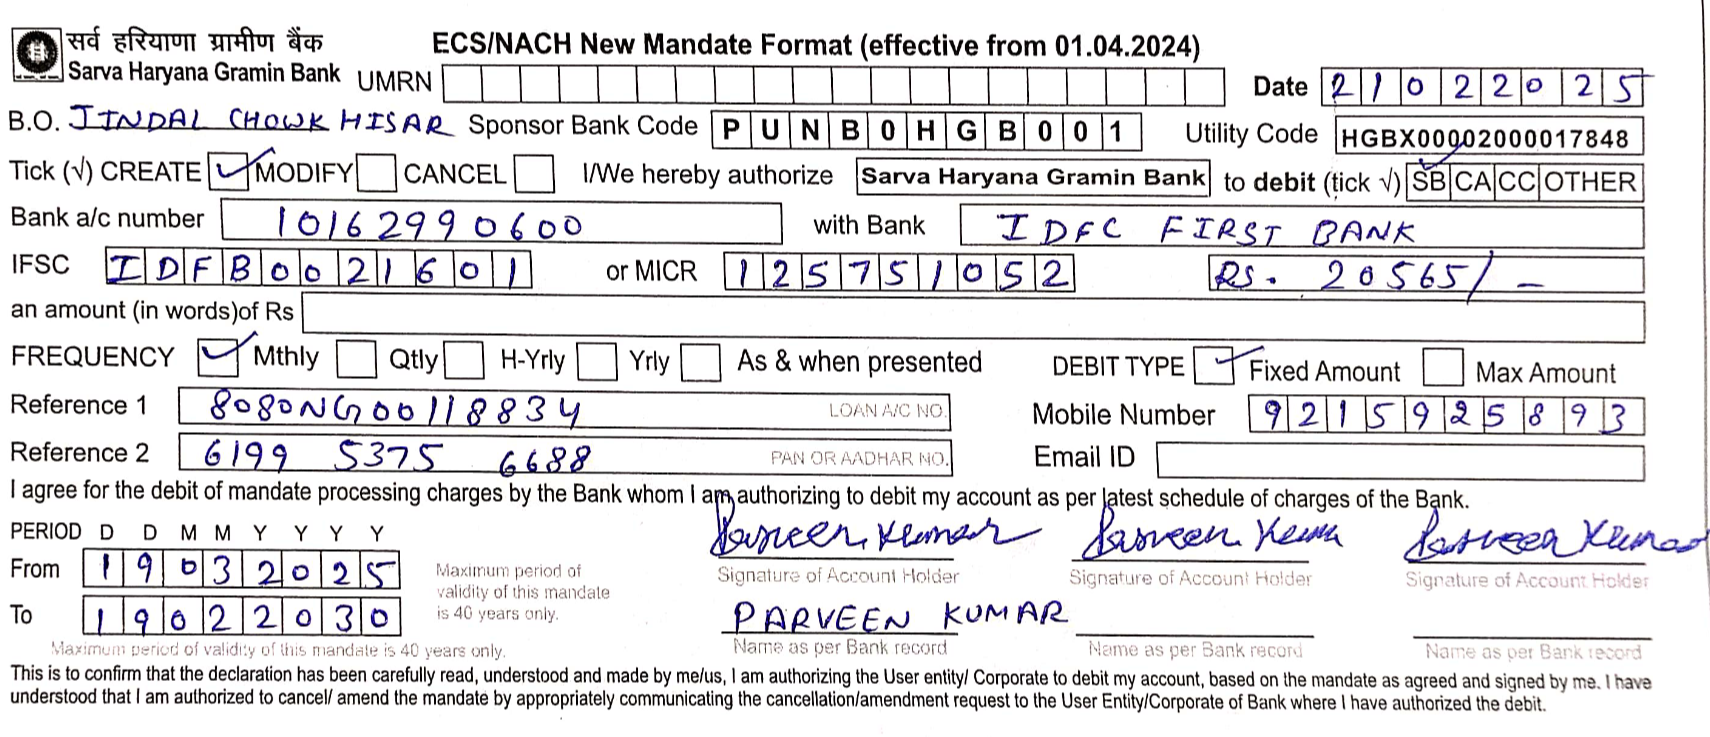 सर्व हरियाणा ग्रामीण बैंक
Sarva Haryana Gramin Bank
ECS/NACH New Mandate Format (effective from 01.04.2024)
UMRN Date 21022025
B.O. JINDAL CHOWK HISAR Sponsor Bank Code PUNB0HGB001 Utility Code HGBX00002000017848
Tick (√) CREATE ✓ MODIFY CANCEL I/We hereby authorize Sarva Haryana Gramin Bank to debit (tick √) ✓ SB CA CC OTHER
Bank a/c number 10162990600 with Bank IDFC FIRST BANK
IFSC IDFB0021601 or MICR 125751052 Rs. 20565/-
an amount (in words)of Rs
FREQUENCY ✓ Mthly Qtly H-Yrly Yrly As & when presented DEBIT TYPE ✓ Fixed Amount Max Amount
Reference 1 8080NG00118834 LOAN A/C NO. Mobile Number 9215925893
Reference 2 6199 5375 6688 PAN OR AADHAR NO. Email ID
I agree for the debit of mandate processing charges by the Bank whom I am authorizing to debit my account as per latest schedule of charges of the Bank.
PERIOD D D M M Y Y Y Y
Parveen Kumar Parveen Kumar Parveen Kumar
From 19032025 Maximum period of validity of this mandate is 40 years only. Signature of Account Holder Signature of Account Holder Signature of Account Holder
To 19022030 PARVEEN KUMAR
Maximum period of validity of this mandate is 40 years only. Name as per Bank record Name as per Bank record Name as per Bank record
This is to confirm that the declaration has been carefully read, understood and made by me/us, I am authorizing the User entity/ Corporate to debit my account, based on the mandate as agreed and signed by me. I have
understood that I am authorized to cancel/ amend the mandate by appropriately communicating the cancellation/amendment request to the User Entity/Corporate of Bank where I have authorized the debit.